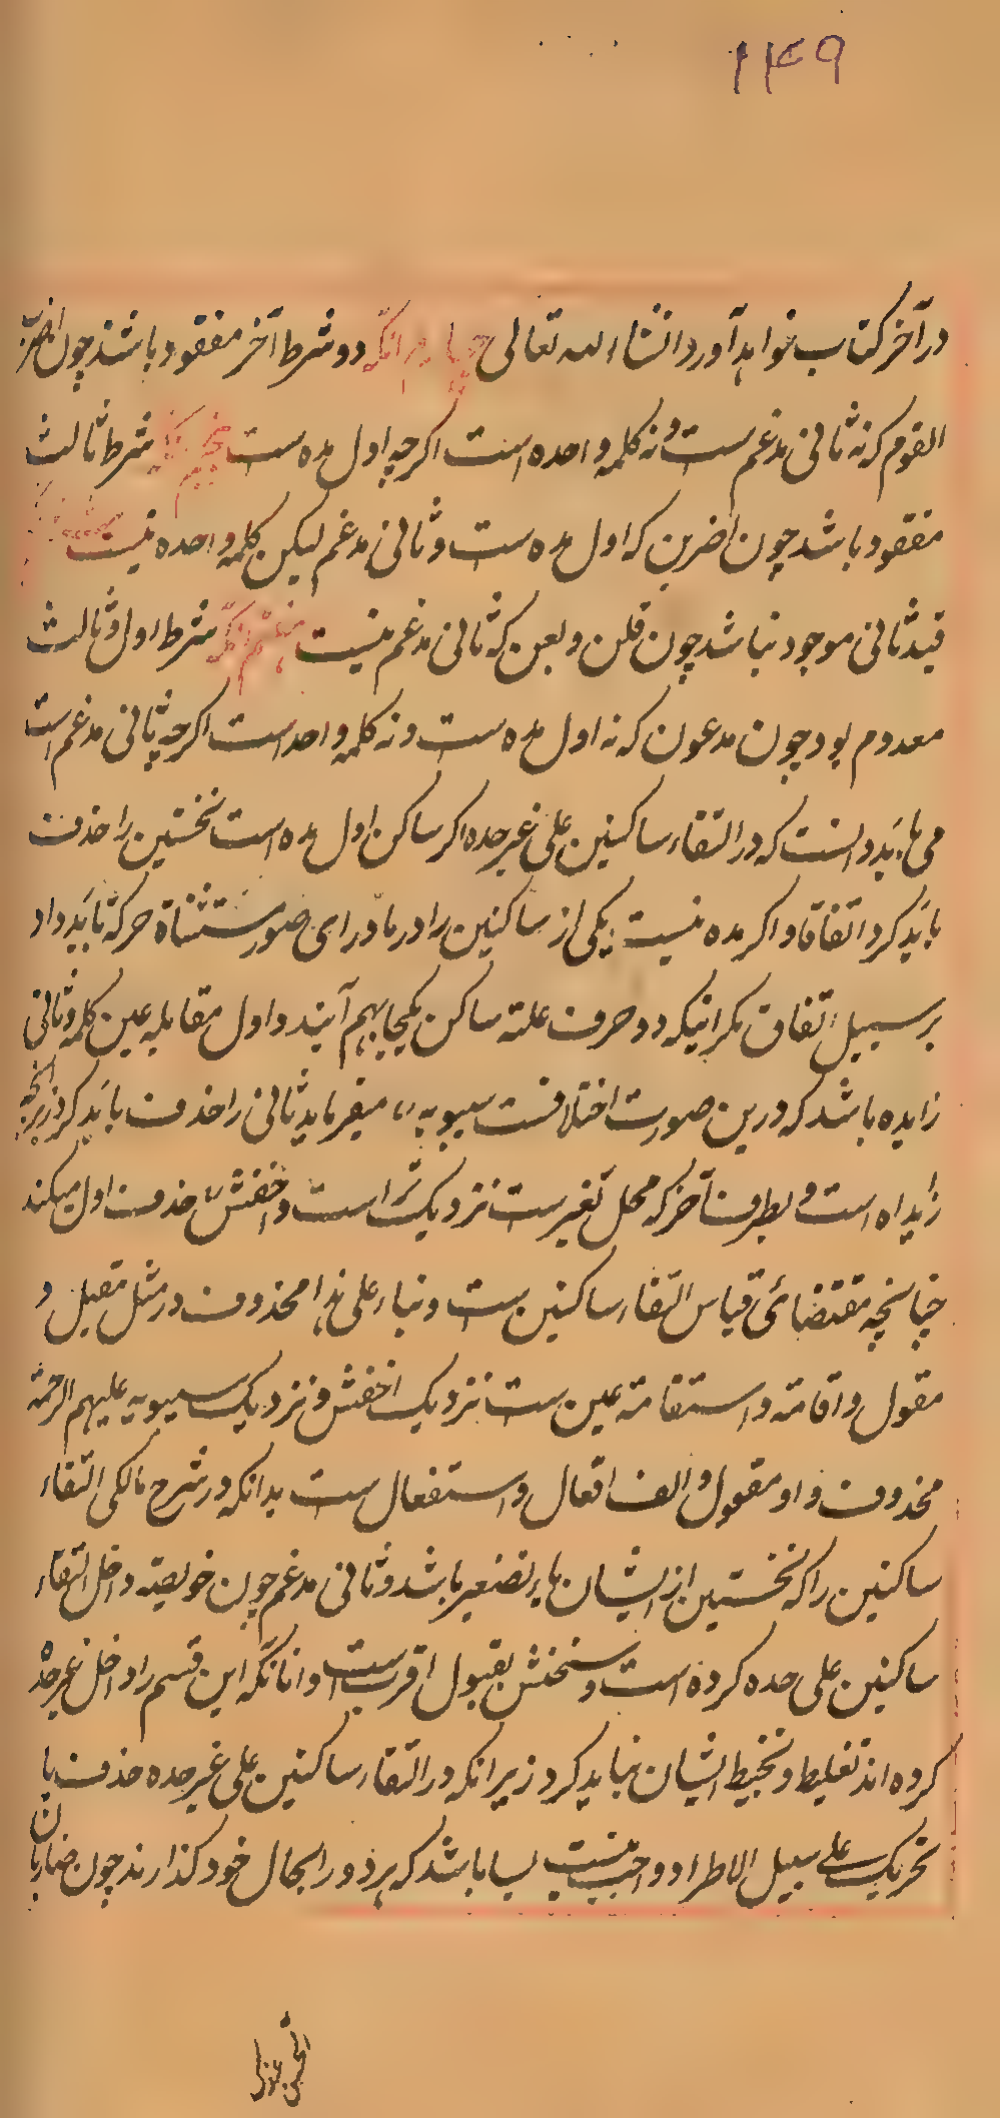 ۱۴۹
در آخر کتاب خواهد آورد انشاء الله تعالی چهارم انکه دو شرط آخر مفقود باشند چون اضربوا
القوم که نه ثانی مدغم ست و نه کلمه واحده است اکرچه اول مده ست پنجم انکه شرط ثالث
مفقود باشد چون اضربن که اول مده ست و ثانی مدغم لیکن کلمه واحده نیست ششم انکه
قید ثانی موجود نباشد چون قلن و بعن که ثانی مدغم نیست هفتم انکه شرط اول و ثالث
معدوم بود چون مدعون که نه اول مده ست و نه کلمه واحد است اکرچه ثانی مدغم است
می باید دانست که در التقاء ساکنین علی غیر حده اکر ساکن اول مده است نخستین را حذف
باید کرد اتفاقا و اکر مده نیست یکی از ساکنین را در ماورای صور مستثناة حرکة باید داد
بر سبیل اتفاق مکر انیکه دو حرف علة ساکن یکجا بهم آیند و اول مقابله عین کلمه و ثانی
زایده باشد که درین صورت اختلافست سیبویه میفرماید ثانی را حذف باید کرد زیرانچه
زایداه است و بطرف آخر که محل تغیر ست نزدیک تر است و اخفش حذف اول میکند
چنانچه مقتضائی قیاس التقاء ساکنین ست و بناء علی هذا محذوف در مثل مقیل و
مقول و اقامة و استقامة عین ست نزدیک اخفش و نزدیک سیبویه علیهم الرحمة
محذوف واو مقوول و الف افعال و استفعال ست بدانکه در شرح مالکی التقاء
ساکنین را که نخستین از ایشان یاء تصغیر باشد و ثانی مدغم چون خویصة داخل التقاء
ساکنین علی حده کرده است و سخنش بقبول اقرب ست و انانکه این قسم را داخل غیر حده
کرده اند تغلیط و تخبیط ایشان نباید کرد زیرانکه در التقاء ساکنین علی غیر حده حذف یا
تحریک علی سبیل الاطراد واجب نیست بسا باشد که هر دو را بحال خود کذارند چون ضاربان